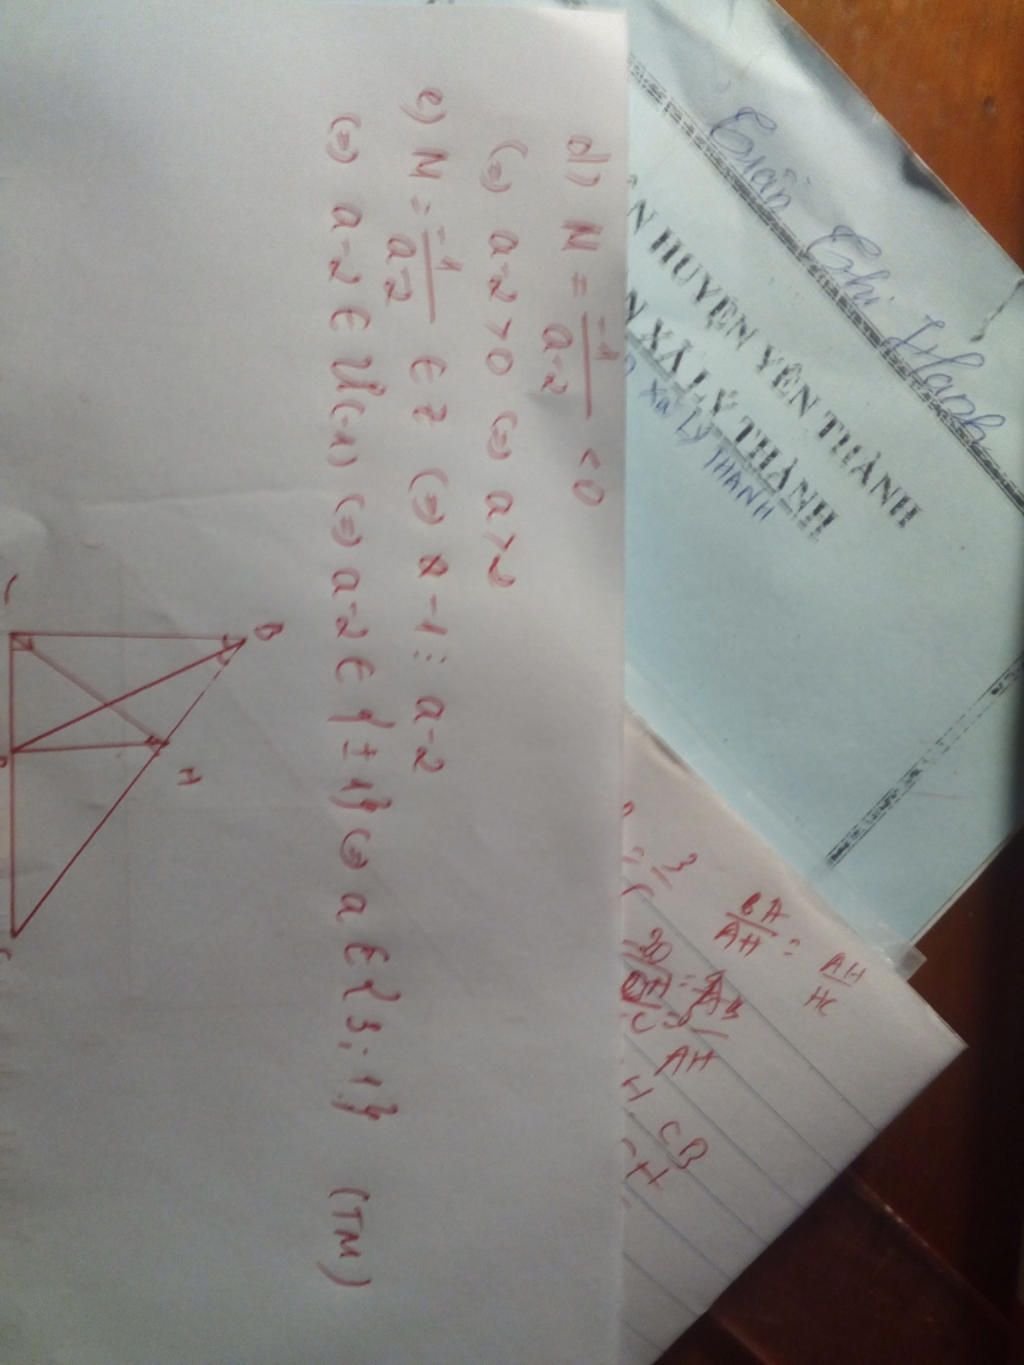 d) N = -1/(a-2) < 0
(=) a-2 > 0 (=) a > 2
e) N = -1/(a-2) ∈ Z (=) -1 ⋮ a-2
(=) a-2 ∈ Ư(-1) (=) a-2 ∈ {±1} (=) a ∈ {3; 1} (TM)
B
H
Trần Thị Hạnh
N HUYỆN YÊN THÀNH
N XÃ LÝ THÀNH
XÃ LÝ THÀNH
BA/AH = AH/HC
20
AH
CB